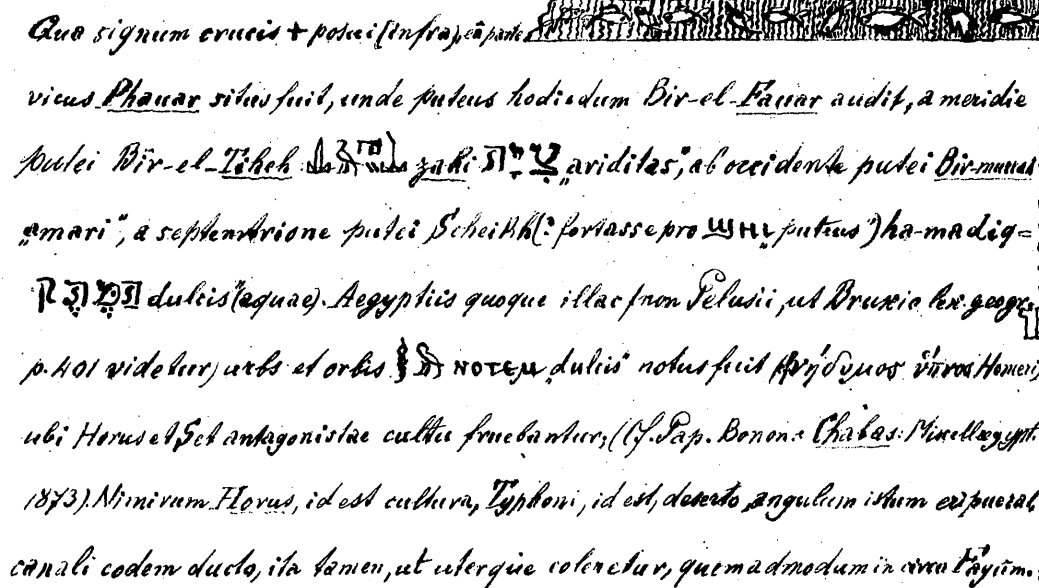 Qua signum crucis + posui (infra), eâ parte
vicus Phauar situs fuit, unde puteus hodiedum Bir-el-Fauar audit, a meridie
putei Bir-el-Tiheh zahi „ariditas“, ab occidente putei Bir-murrah
„amari“, a septemtrione putei Scheikh (: fortasse pro ϢΗΙ „puteus“) ha-madig=
„dulcis“ (aquae). Aegyptiis quoque illac (non Pelusii, ut Bruxio lex. geogr.
p. 401 videtur) urbs et orbis ΝΟΤΕΜ „dulcis“ notus fuit (νήδυμος ὕπνος Homeri)
ubi Horus et Set antagonistae cultu fruebantur, (Cf. Pap. Bonon: Chabas: Misell. aegypt.
1873). Nimirum Horus, id est cultura, Typhoni, id est, deserto, angulum istum eripuerat,
canali eodem ducto, ita tamen, ut uterque coleretur, quemadmodum in circa Fayûm.